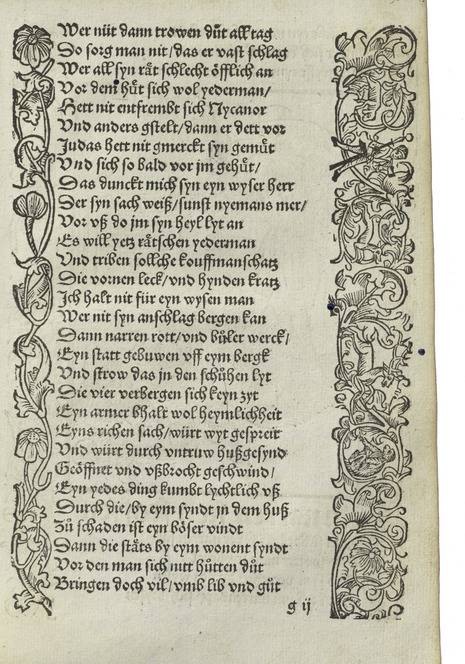 Wer nüt dann trowen důt all tag
So sorg man nit/das er vast schlag
Wer all syn rät schlecht öfflich an
Vor dem hůt sich wol yederman/
Hett nit entfrembt sich Nycanor
Vnd anders gstelt/dann er dett vor
Judas hett nit gmerckt syn gemůt
Vnd sich so bald vor jm gehůt/
Das dunckt mich syn eyn wyser herr
Der syn sach weiß/sunst nyemans mer/
Vor vß do jm syn heyl lyt an
Es will yetz rätschen yederman
Vnd triben sollche kouffmanschatz
Die vornen leck/vnd hynden kratz
Ich halt nit für eyn wysen man
Wer nit syn anschlag bergen kan
Dann narren rott/vnd bůler werck/
Eyn statt gebuwen vff eym bergk
Vnd strow das in den schůhen lyt
Die vier verbergen sich keyn zyt
Eyn armer bhalt wol heymlichheit
Eyns richen sach/würt wyt gespreit
Vnd würt durch vntruw hußgesynd
Geöffnet vnd vßbrocht geschwind/
Eyn yedes ding kumbt lychtlich vß
Durch die/by eym syndt jn dem huß
Zů schaden ist eyn böser vindt
Dann die stäts by eym wonent syndt
Vor den man sich nitt hütten důt
Bringen doch vil/vmb lib vnd gůt
g ij